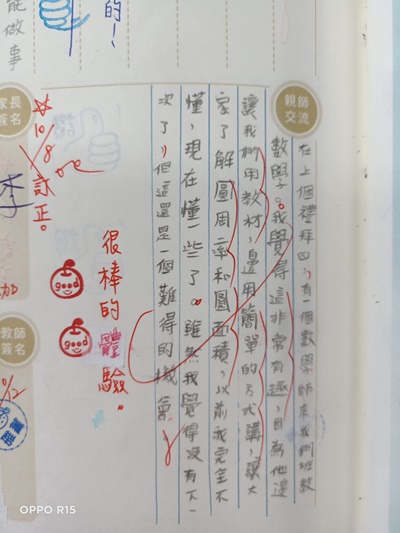 能做事
的！
親師
交流
在上個禮拜四，有一個數學師來我們班教
數學。我覺得這非常有趣，因為他邊
讓我們用教材，邊用簡單的方式講，讓大
家了解圓周率和圓面積，以前我完全不
懂，現在懂一些了。雖然我覺得沒有下一
次了，但這還是一個難得的機會。
很棒的體驗。
good
good
家長
簽名
☆10/8訂正。
ok
李
加
教師
簽名
OPPO R15